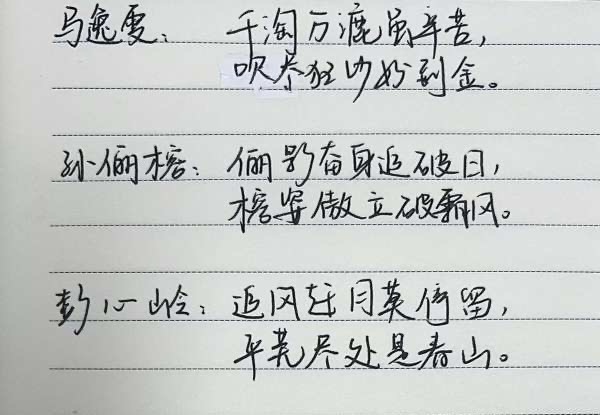 马逸雯：千淘万漉虽辛苦，
吹尽狂沙始到金。
孙俪榕：俪影奋身追破日，
榕姿傲立破霜风。
彭心岭：追风赶月莫停留，
平芜尽处是春山。